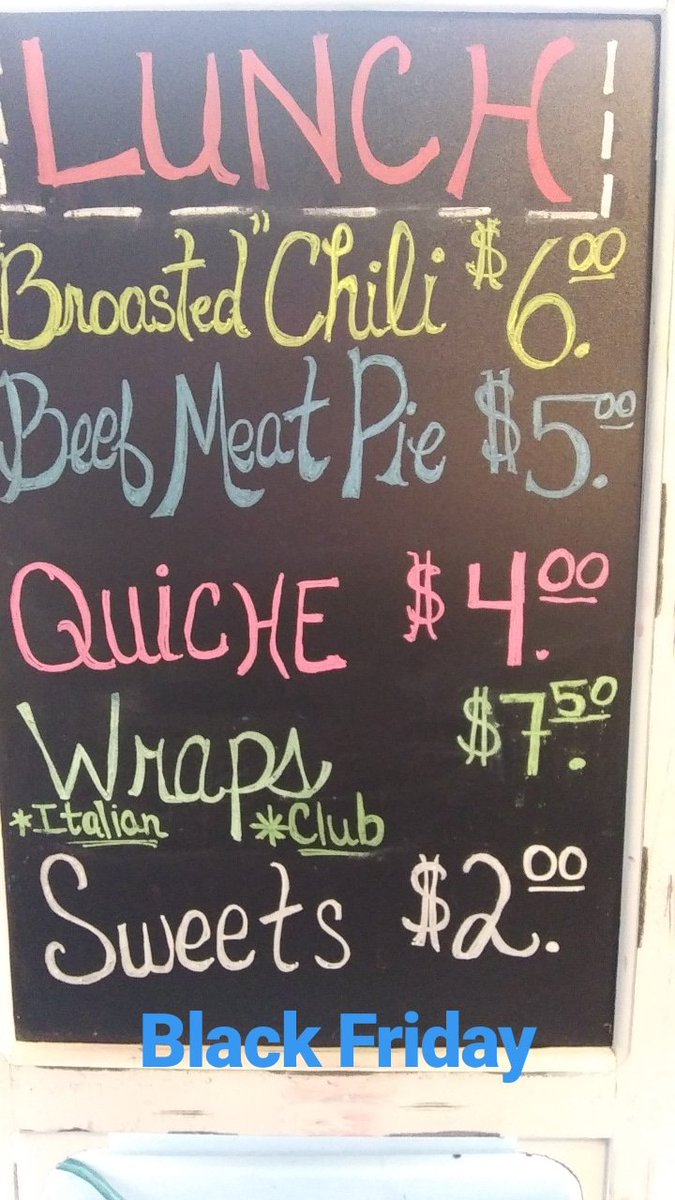 LUNCH
"Broasted" Chili $6.00
Beef Meat Pie $5.00
QUiCHE $4.00
Wraps $7.50
*Italian *Club
Sweets $2.00
Black Friday